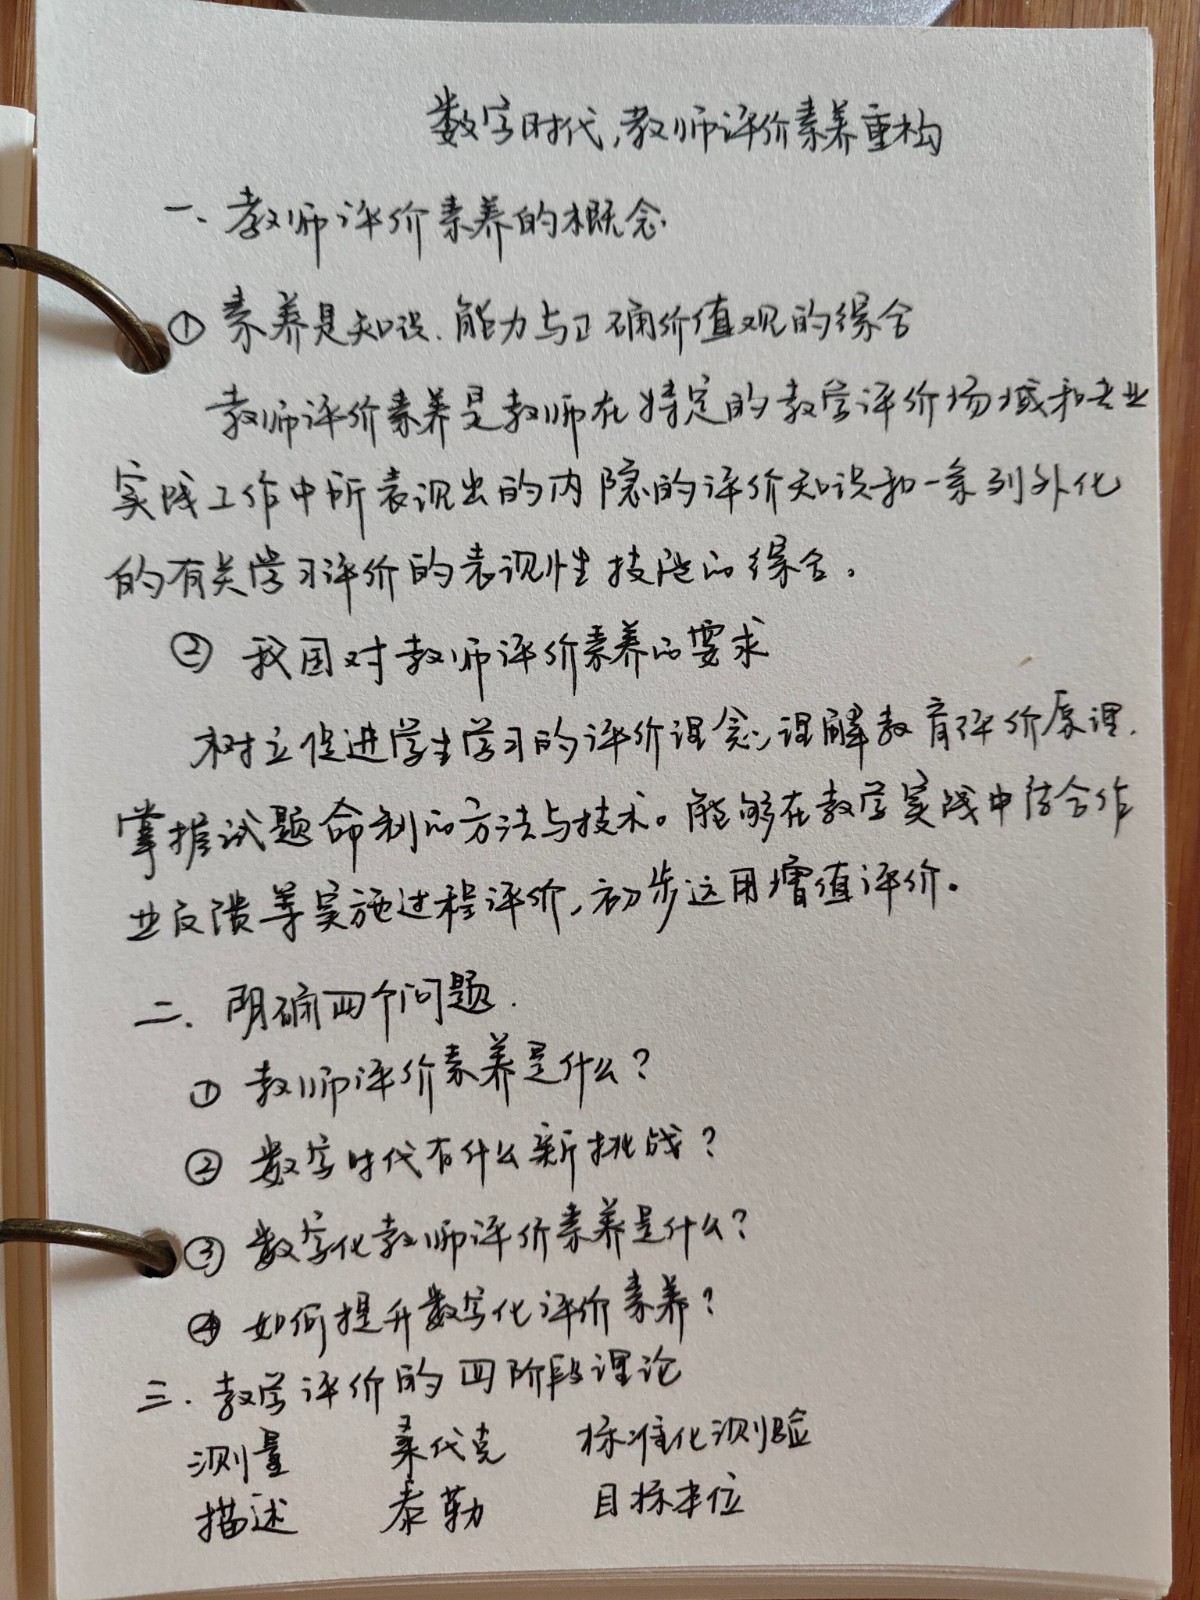 数字时代,教师评价素养重构
一、教师评价素养的概念.
① 素养是知识、能力与正确价值观的综合
教师评价素养是教师在特定的教学评价场域和专业
实践工作中所表现出的内隐的评价知识和一系列外化
的有关学习评价的表现性技能的综合。
② 我国对教师评价素养的要求
树立促进学生学习的评价理念,理解教育评价原理.
掌握试题命制的方法与技术。能够在教学实践中结合作
业反馈等实施过程评价,初步运用增值评价。
二、明确四个问题.
① 教师评价素养是什么?
② 数字时代有什么新挑战?
③ 数字化教师评价素养是什么?
④ 如何提升数字化评价素养?
三、教学评价的四阶段理论
测量 桑代克 标准化测验
描述 泰勒 目标本位